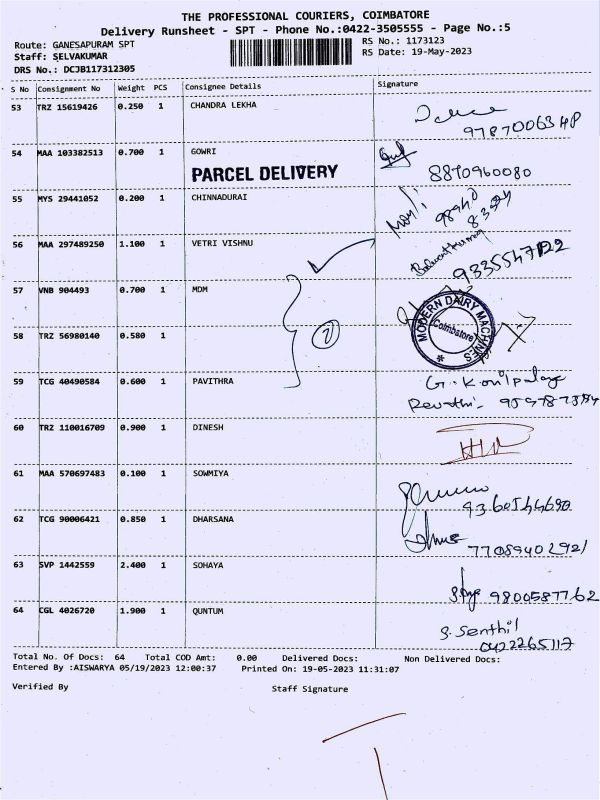 THE PROFESSIONAL COURIERS, COIMBATORE
Delivery Runsheet - SPT - Phone No.:0422-3505555 - Page No.:5
Route: GANESAPURAM SPT
RS No.: 1173123
Staff: SELVAKUMAR
RS Date: 19-May-2023
DRS No.: DCJB117312305
S No Consignment No Weight PCS Consignee Details Signature
53 TRZ 15619426 0.250 1 CHANDRA LEKHA
54 MAA 103382513 0.700 1 GOWRI
8870960080
PARCEL DELIVERY
55 MYS 29441052 0.200 1 CHINNADURAI
56 MAA 297489250 1.100 1 VETRI VISHNU
57 VNB 904493 0.700 1 MDM
MODERN DAIRY MACHINES
Coimbatore
58 TRZ 56980140 0.580 1
59 TCG 40490584 0.600 1 PAVITHRA
60 TRZ 110016709 0.900 1 DINESH
61 MAA 570697483 0.100 1 SOWMIYA
62 TCG 90006421 0.850 1 DHARSANA
77089402921
63 SVP 1442559 2.400 1 SOHAYA
9800587762
64 CGL 4026720 1.900 1 QUNTUM
S. Senthil
04222265117
Total No. Of Docs: 64 Total COD Amt: 0.00 Delivered Docs: Non Delivered Docs:
Entered By :AISWARYA 05/19/2023 12:00:37 Printed On: 19-05-2023 11:31:07
Verified By Staff Signature